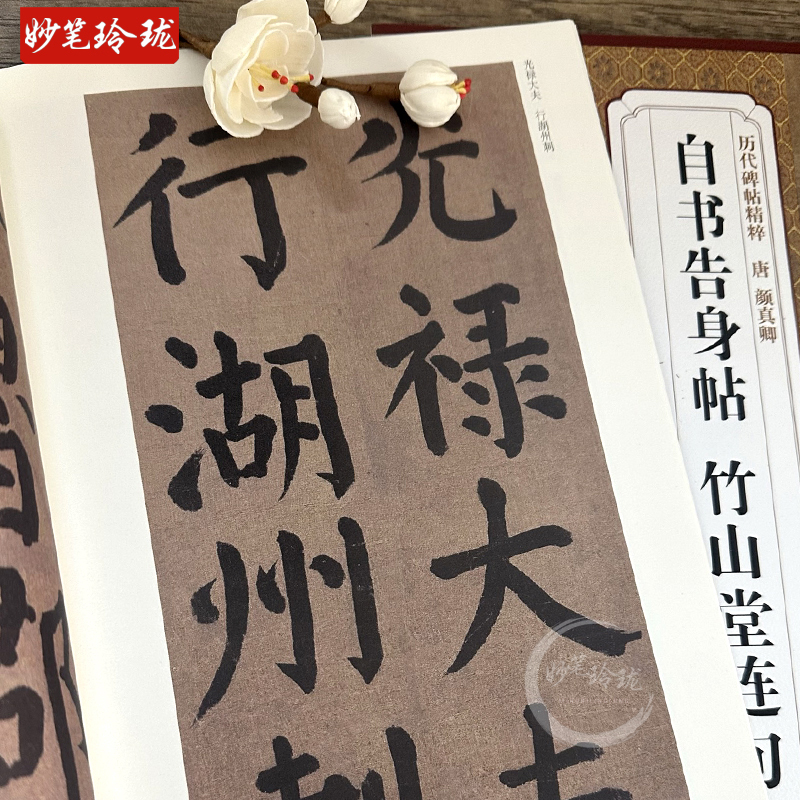 妙笔玲珑
光禄大夫 行湖州刺
光禄大
行湖州
历代碑帖精粹 唐 颜真卿
自书告身帖 竹山堂连句
妙笔玲珑